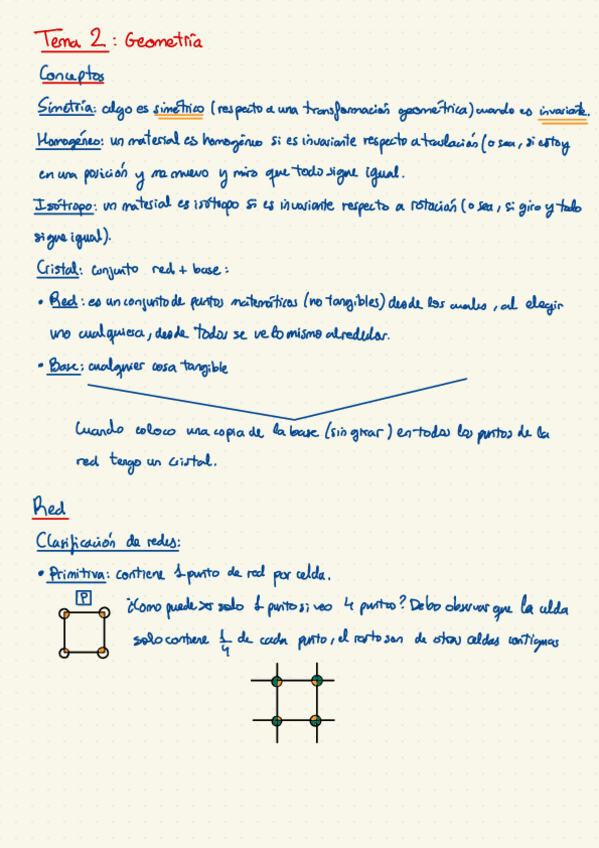 Tema 2: Geometría
Conceptos
Simetría: algo es simétrico (respecto a una transformación geométrica) cuando es invariante.
Homogéneo: un material es homogéneo si es invariante respecto a traslación (o sea, si estoy
en una posición y me muevo y miro que todo sigue igual.
Isótropo: un material es isótropo si es invariante respecto a rotación (o sea, si giro y todo
sigue igual).
Cristal: conjunto red + base:
• Red: es un conjunto de puntos matemáticos (no tangibles) desde los cuales, al elegir
uno cualquiera, desde todos se ve lo mismo alrededor.
• Base: cualquier cosa tangible
Cuando coloco una copia de la base (sin girar) en todos los puntos de la
red tengo un cristal.
Red
Clasificación de redes:
• Primitiva: contiene 1 punto de red por celda.
P
¿Como puede ser solo 1 punto si veo 4 puntos? Debo observar que la celda
solo contiene 1/4 de cada punto, el resto son de otras celdas contiguas